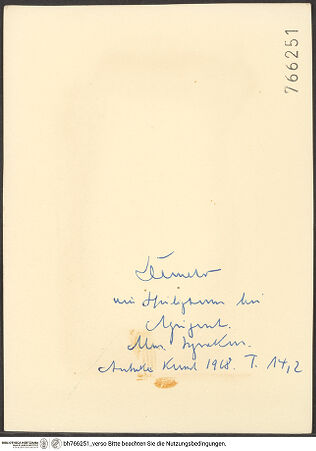 766251
Demeter
im Heiligtum bei
Agrigent.
Mus. Syrakus.
Antike Kunst 1968. T. 14,2
bh766251_verso Bitte beachten Sie die Nutzungsbedingungen.